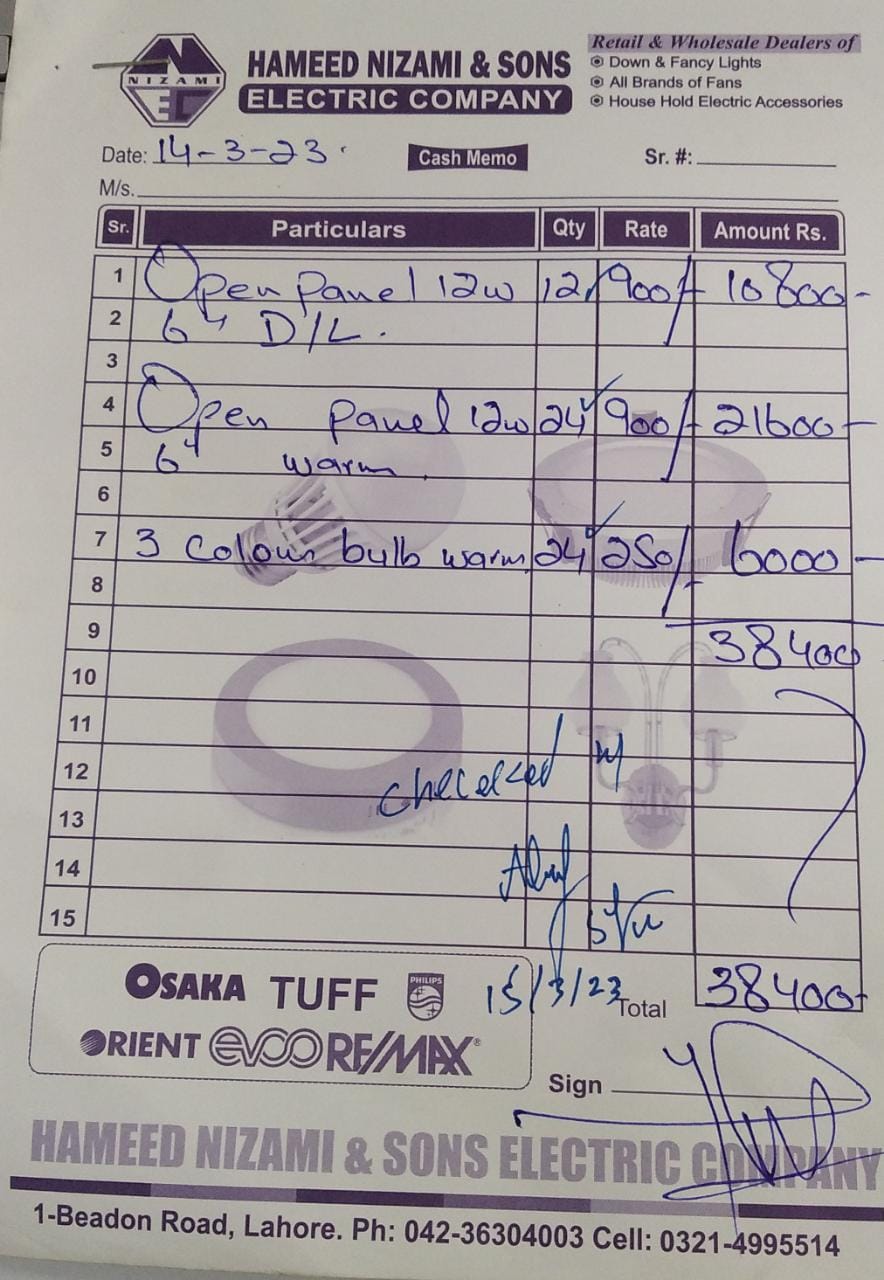 NIZAMI
EC
HAMEED NIZAMI & SONS
ELECTRIC COMPANY
Retail & Wholesale Dealers of
Down & Fancy Lights
All Brands of Fans
House Hold Electric Accessories
Date: 14-3-23
Cash Memo
Sr. #:
M/s.
Sr. Particulars Qty Rate Amount Rs.
1 Open panel 12w 12 900/- 10800-
2 6" D/L.
3
4 Open panel 12w 24 900/- 21600-
5 6" warm
6
7 3 Colour bulb warm 24 250/- 6000-
8
9 38400
10
11
12 checked
13
14
15
OSAKA TUFF PHILIPS
15/3/23 Total 38400-
ORIENT evoo RE/MAX
Sign
HAMEED NIZAMI & SONS ELECTRIC COMPANY
1-Beadon Road, Lahore. Ph: 042-36304003 Cell: 0321-4995514